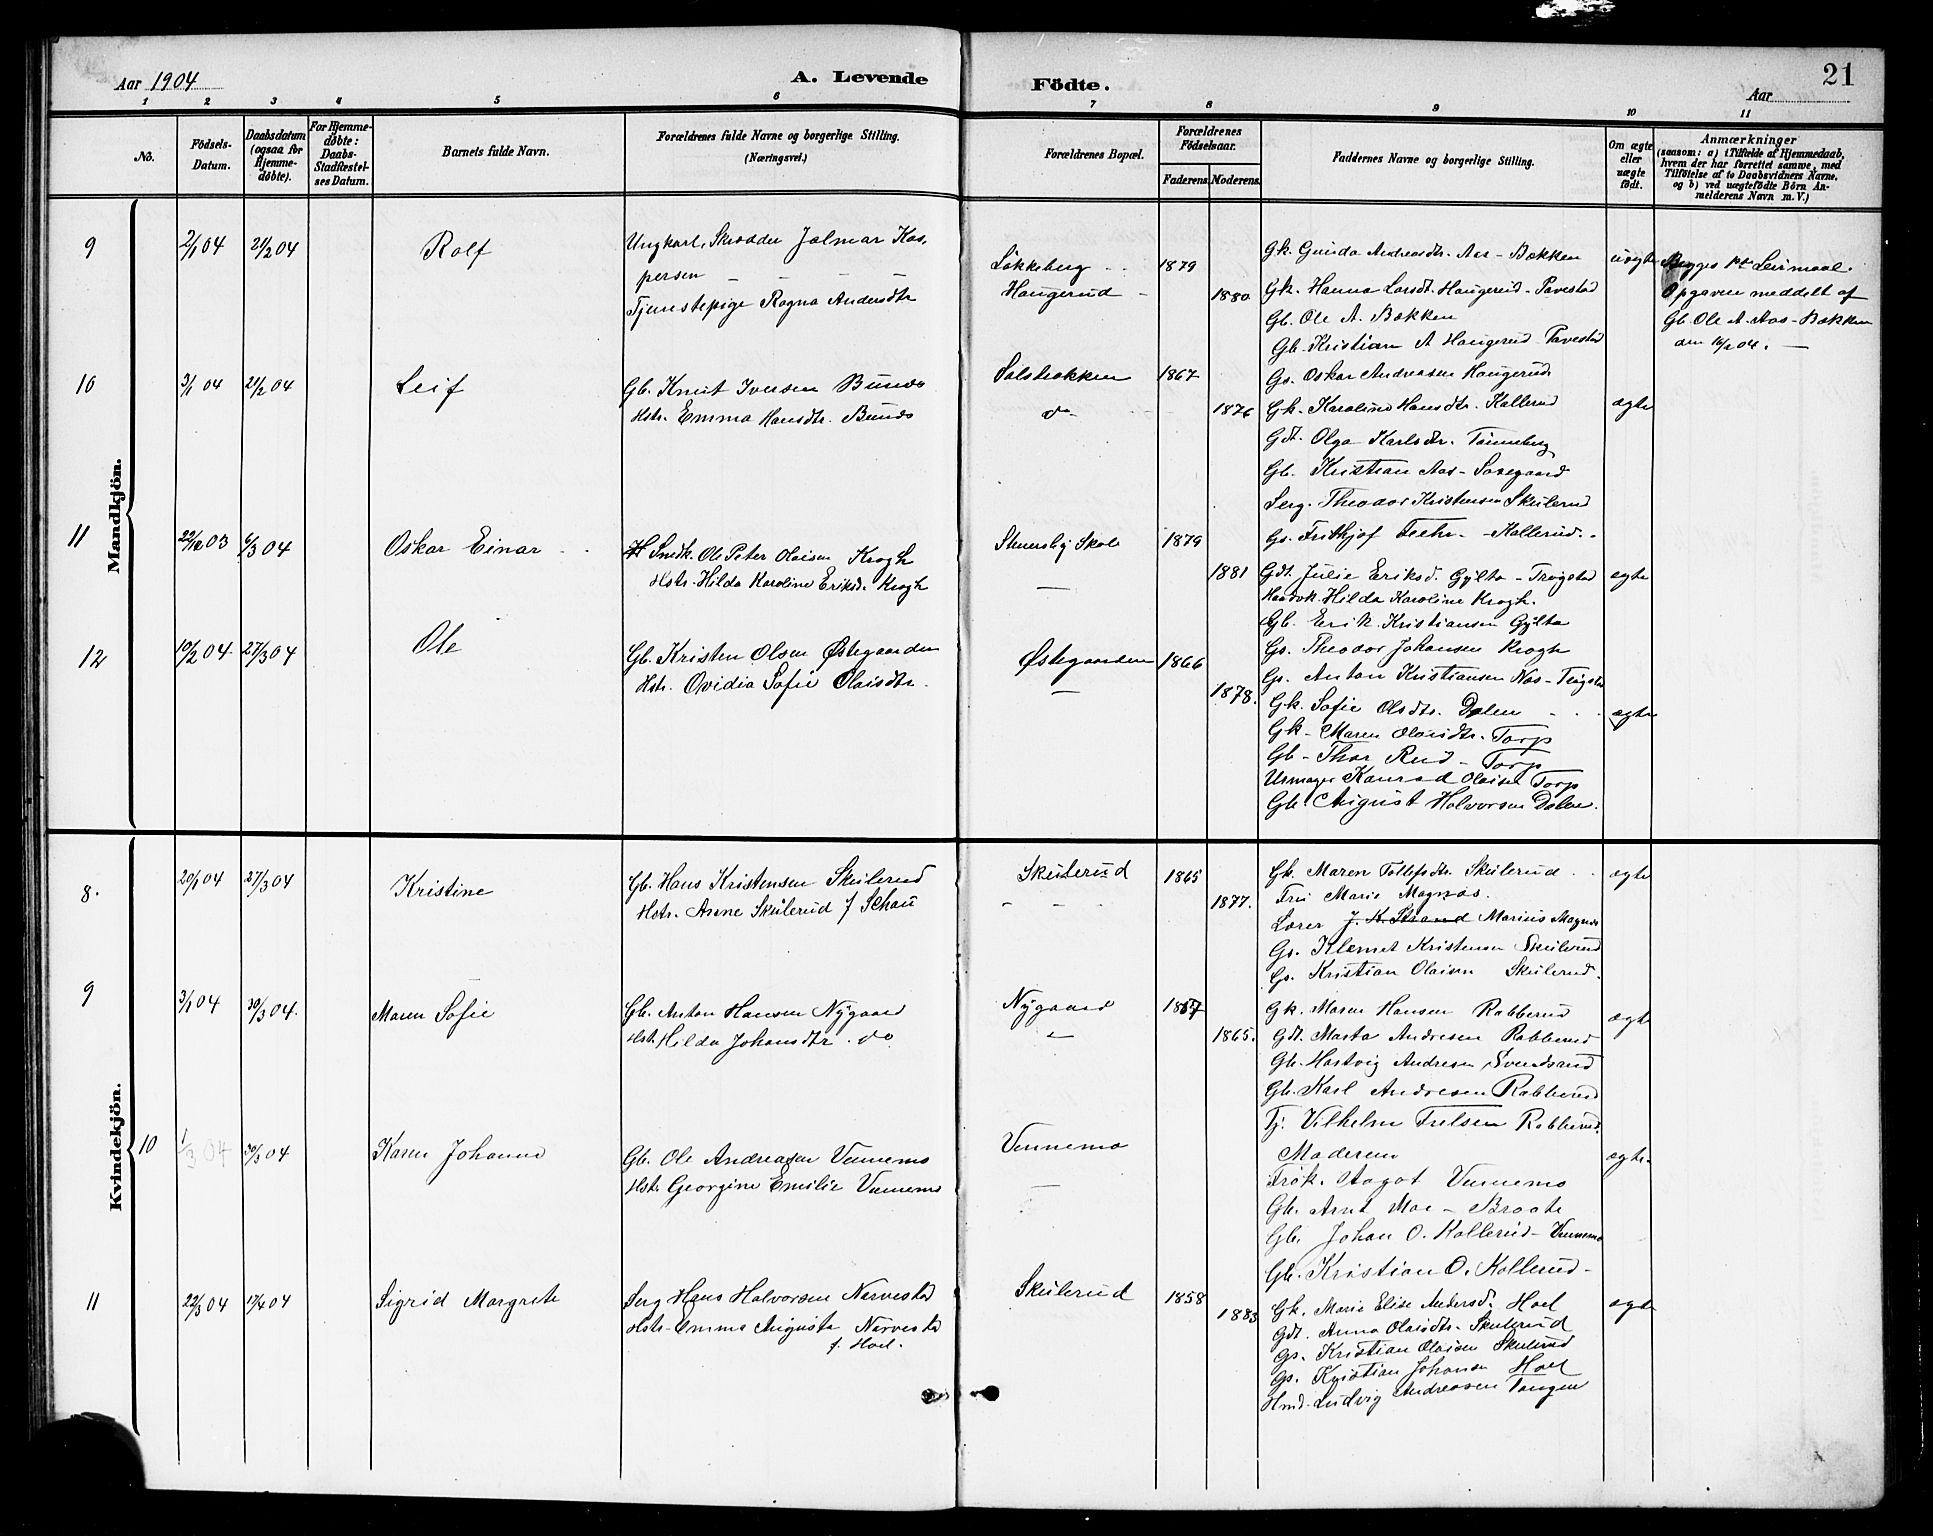 Aar 1904
A. Levende
Födte.
Aar
21
1 2 3 4 5 6 7 8 9 10 11
No.
Födsels-
Datum.
Daabsdatum
(ogsaa for
Hjemme-
döbte).
For Hjemme-
döbte:
Daabs-
Stadfæstel-
ses Datum.
Barnets fulde Navn.
Forældrenes fulde Navne og borgerlige Stilling.
(Næringsvei.)
Forældrenes Bopæl.
Forældrenes
Födselsaar.
Faderens. Moderens.
Faddernes Navne og borgerlige Stilling.
Om ægte
eller
uægte
födt.
Anmærkninger
(saasom: a) i Tilfælde af Hjemmedaab,
hvem der har forrettet samme, med
Tilföielse af to Daabsvidners Navne,
og b) ved uægtefödte Börn An-
melderens Navn m.V.)
Mandkjön.
9
2/1 04
21/2 04
Rolf
Ungkarl, Skrædder Jalmar Kas-
persen
Tjenestepige Ragna Andersdtr
Løkkeberg
Haugerud
1879
1880
Gk. Gunda Andreasdtr. Aas - Bækken
Gk. Hanna Larsdt. Haugerud - Tavestad
Gb. Ole A. Bækken
Gb. Kristian A Haugerud Tavestad
Gs. Oskar Andreasen Haugerud
uægte
Begges 1ste Leirmaal.
Opgaven meddelt af
Gb. Ole A. Aas - Bækken
den 16/2 04.
10
3/1 04
21/2 04
Leif
Gb. Knut Iversen Bunes
Hstr. Emma Hansdtr. Bunes
do
1867
1876
Gk. Karoline Hansdtr. Kallerud
Gdt. Olga Karlsdtr. Tanneberg
Gb. Kristian Aas - Toregaard
Serg. Theodor Kristensen Skulerud
Gs. Frithjof - Kallerud
ægte
11
22/12 03
6/3 04
Oskar Einar
Smdk. Ole Peter Olaisen Krogh
Hstr. Hilda Karoline Eriksd. Krogh
Skole
1879
1881
Gdt. Julie Eriksd. Gylta - Trøgstad
Hilda Karoline Krogh.
Gb. Erik Kristiansen Gylta
Gs. Theodor Johansen Krogh
Gs. Anton Kristiansen Næs - Trøgstad
ægte
12
10/2 04
27/3 04
Ole
Gb. Kristen Olsen Østegaarden
Hstr. Ovidia Sofie Olaisdtr.
Østegaarden
1866
1878.
Gk. Sofie Olsdtr. Dalen
Gk - Maren Olaisdtr. Torp
Gb - Thor Rud - Torp
Urmager Konrad Olaisen Torp
Gb. August Halvorsen Dalen.
ægte
Kvindekjön.
8.
20/1 04
27/3 04
Kristine
Gb. Hans Kristensen Skulerud
Hstr. Anne Skulerud f Schau
Skulerud
1865
1877.
Gk. Maren Tollefsdtr. Skulerud
Fru Marie Magnas.
Lærer J. K. Strand Marius Magnæs
Gs. Klemet Kristensen Skulerud
Gs. Kristian Olaisen Skulerud.
ægte
9
3/1 04
30/3 04.
Maren Sofie
Gb. Anton Hansen Nygaard
Hstr. Hilda Johansdtr. do
Nygaard
1867
1865.
Gk. Maren Hansen Rabberud
Gdt. Marta Andresen Rabberud
Gb. Hartvig Andresen Svendsrud
Gb. Karl Andresen Rabberud
Tj. Vilhelm Rabberud.
ægte
10
1/3 04
30/3 04
Karen Johanne
Gb. Ole Andreasen Vennemo
Hstr. Georgine Emilie Vennemo
Vennemo
Moderen
Frøk. Aagot Vennemo
Gb. Arnt Moe - Braate
Gb. Johan O. Kallerud - Vennemo
Gb. Kristian O. Kallerud -
ægte.
11
22/3 04
17/4 04
Sigrid Margrete
Serg Hans Halvorsen Narvestad
Hstr. Emma Augusta Narvestad
f. Hoel.
Skulerud
1858
1883
Gk. Marie Elise Andersd. Hoel
Gdt. Anna Olaisdtr. Skulerud
Gs. Kristian Olaisen Skulerud
Gs. Kristian Johansen Hoel
Hmd. Ludvig Andreasen Tangen
ægte